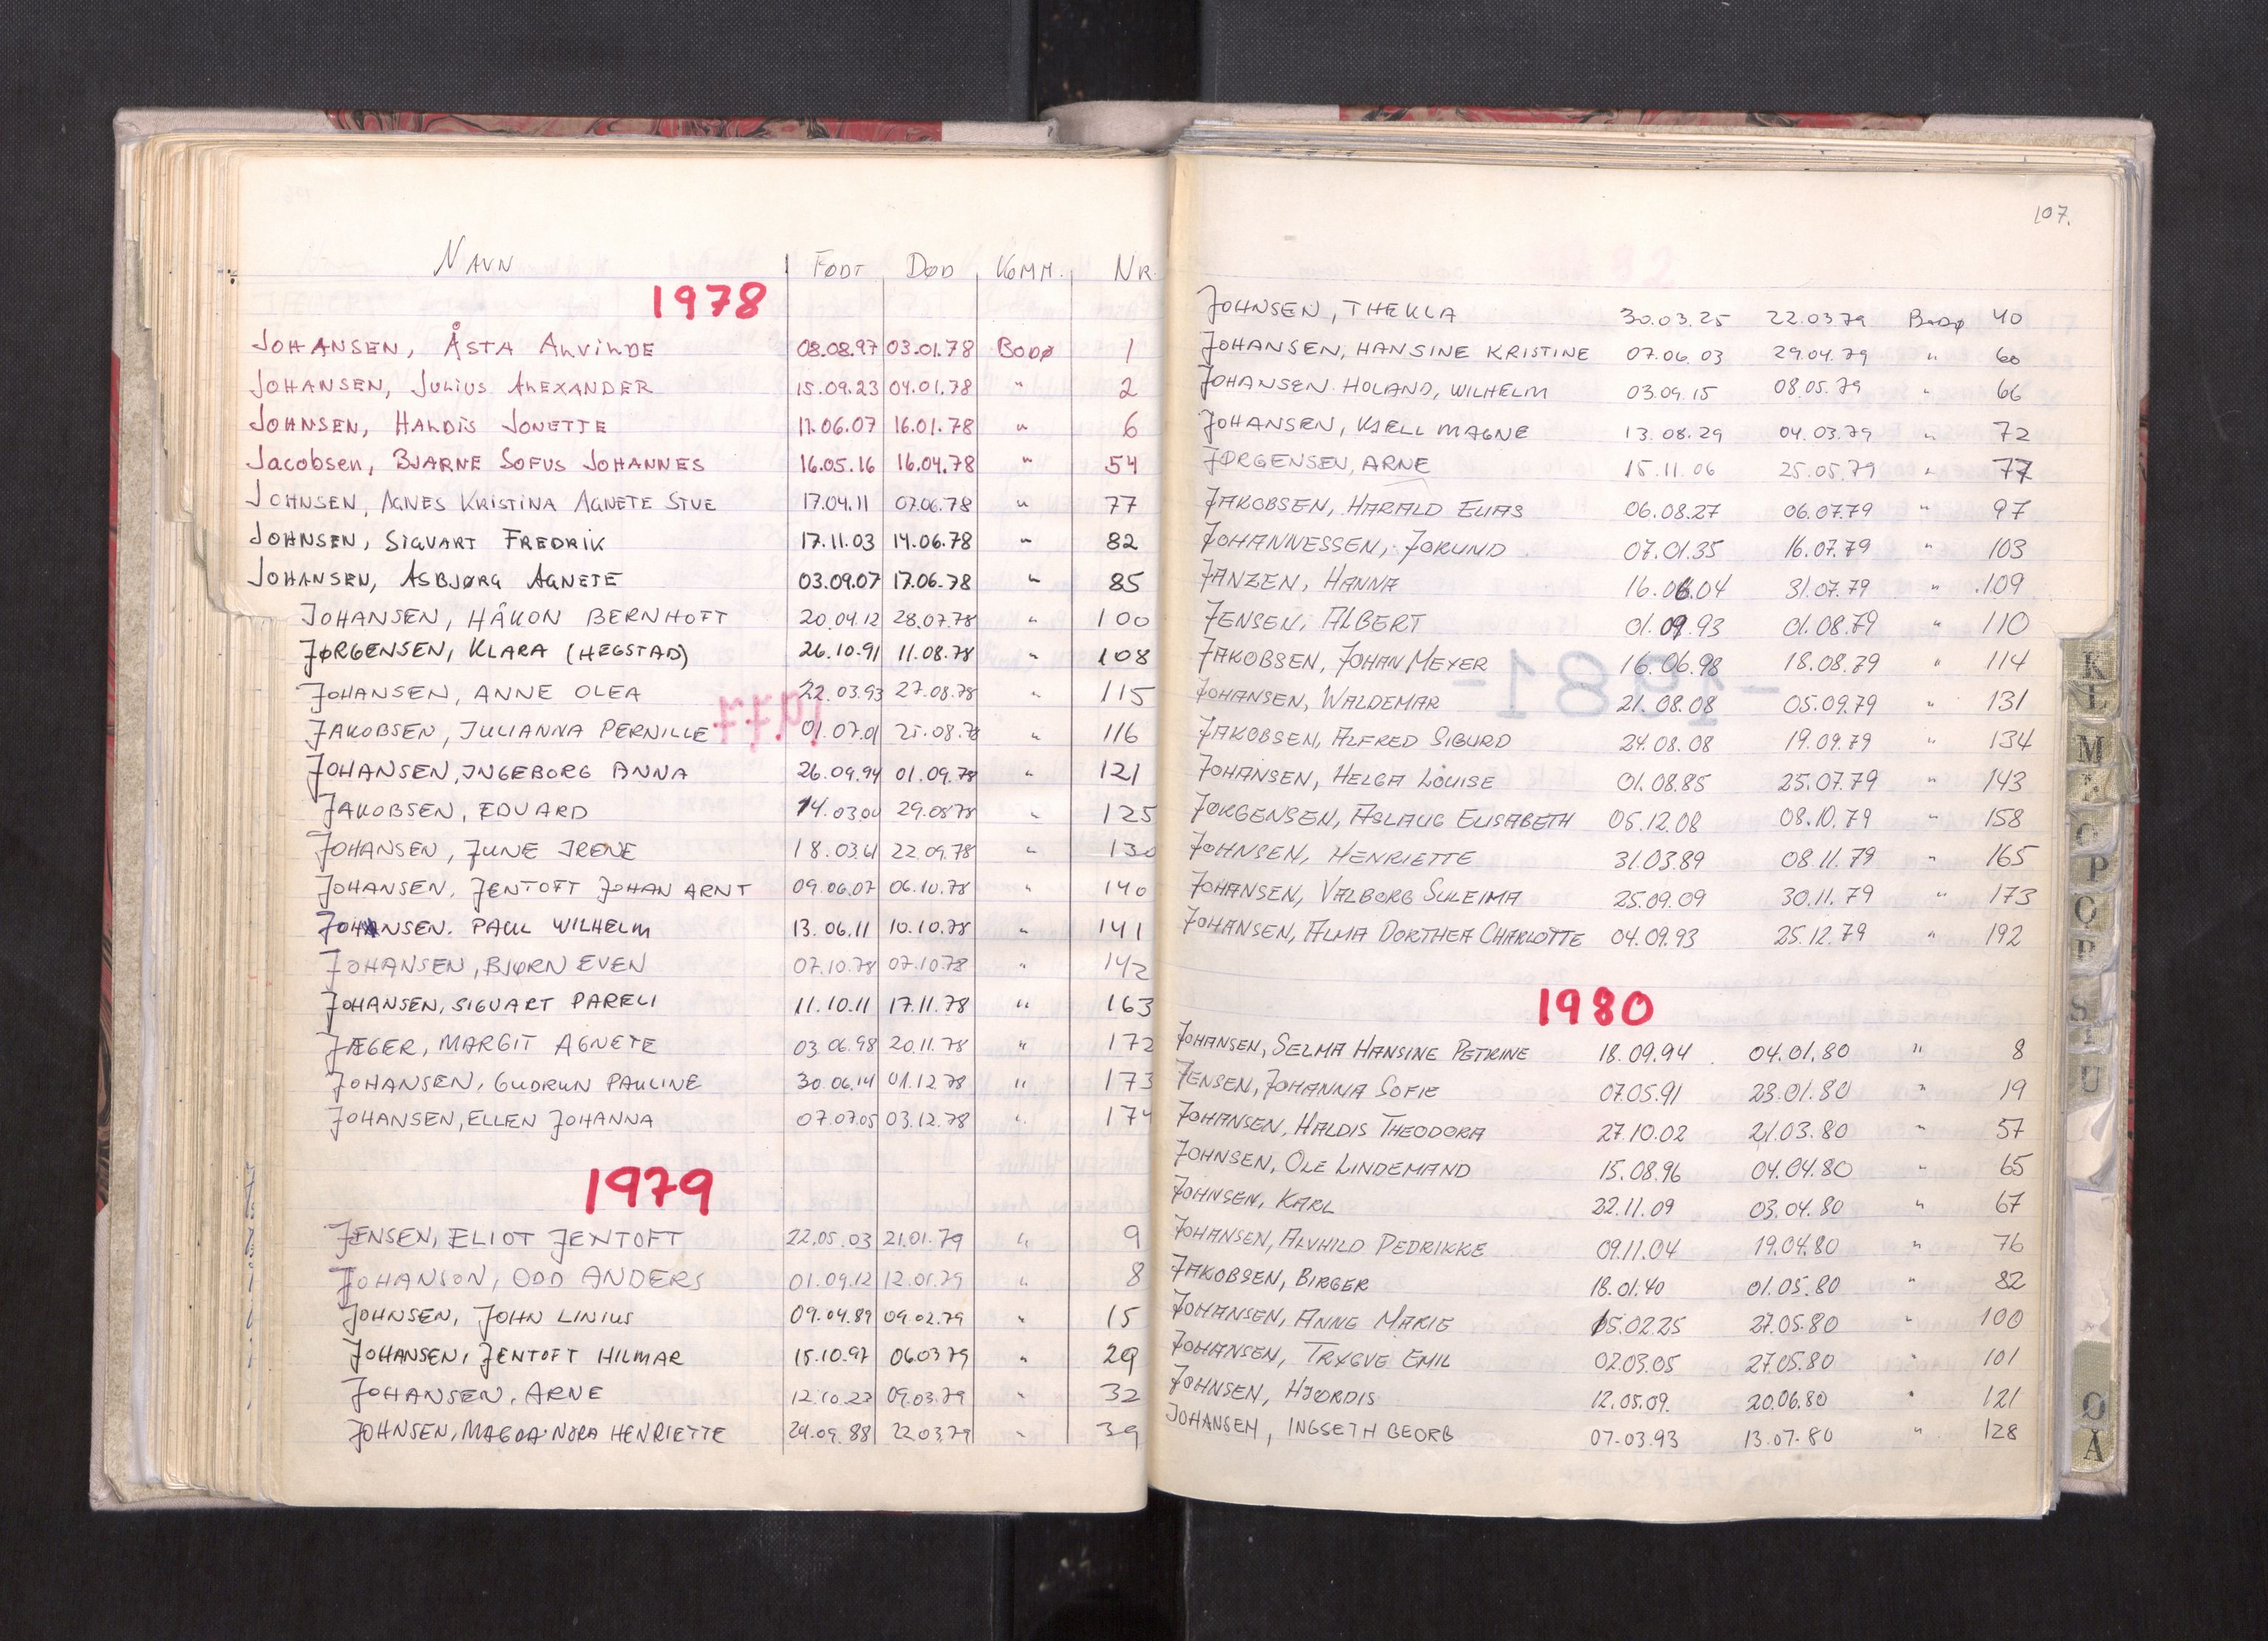 NAVN FØDT DØD KOMM. NR.
1978
JOHANSEN, ÅSTA ALVILDE 08.08.97 03.01.78 BODØ 1
JOHANSEN, JULIUS ALEXANDER 15.09.23 04.01.78 " 2
JOHNSEN, HALDIS JONETTE 17.06.07 16.01.78 " 6
Jacobsen, BJARNE SOFUS JOHANNES 16.05.16 16.04.78 " 54
JOHNSEN, AGNES KRISTINA AGNETE STUE 17.04.11 07.06.78 " 77
JOHNSEN, SIGVART FREDRIK 17.11.03 14.06.78 " 82
JOHANSEN, ASBJØRG AGNETE 03.09.07 17.06.78 " 85
JOHANSEN, HÅKON BERNHOFT 20.04.12 28.07.78 " 100
JØRGENSEN, KLARA (HEGSTAD) 26.10.91 11.08.78 " 108
JOHANSEN, ANNE OLEA 22.03.93 27.08.78 " 115
JAKOBSEN, JULIANNA PERNILLE 01.07.01 25.08.78 " 116
JOHANSEN, INGEBORG ANNA 26.09.94 01.09.78 " 121
JAKOBSEN, EDVARD 14.03.00 29.08.78 " 125
JOHANSEN, JUNE IRENE 18.03.61 22.09.78 " 130
JOHANSEN, JENTOFT JOHAN ARNT 09.06.07 06.10.78 " 140
JOHANSEN. PAUL WILHELM 13.06.11 10.10.78 " 141
JOHANSEN, BJØRN EVEN 07.10.78 07.10.78 " 142
JOHANSEN, SIGVART PARELI 11.10.11 17.11.78 " 163
JÆGER, MARGIT AGNETE 03.06.98 20.11.78 " 172
JOHANSEN, GUDRUN PAULINE 30.06.14 01.12.78 " 173
JOHANSEN, ELLEN JOHANNA 07.07.05 03.12.78 " 174
1979
JENSEN, ELIOT JENTOFT 22.05.03 21.01.79 " 9
JOHANSON, ODD ANDERS 01.09.12 12.01.79 " 8
JOHNSEN, JOHN LINIUS 09.04.89 09.02.79 " 15
JOHANSEN, JENTOFT HILMAR 15.10.97 06.03.79 " 29
JOHANSEN, ARNE 12.10.23 09.03.79 " 32
JOHNSEN, MAGDA NORA HENRIETTE 24.09.88 22.03.79 " 39
107.
JOHNSEN, THEKLA 30.03.25 22.03.79 BODØ 40
JOHANSEN, HANSINE KRISTINE 07.06.03 29.04.79 " 60
JOHANSEN HOLAND, WILHELM 03.09.15 08.05.79 " 66
JOHANSEN, KJELL MAGNE 13.08.29 04.03.79 " 72
JØRGENSEN, ARNE 15.11.06 25.05.79 " 77
JAKOBSEN, HARALD ELIAS 06.08.27 06.07.79 " 97
JOHANNESSEN, JORUND 07.01.35 16.07.79 " 103
JANZEN, HANNA 16.06.04 31.07.79 " 109
JENSEN, ALBERT 01.09.93 01.08.79 " 110
JAKOBSEN, JOHAN MEYER 16.06.98 18.08.79 " 114
JOHANSEN, WALDEMAR 21.08.08 05.09.79 " 131
JAKOBSEN, ALFRED SIGURD 24.08.08 19.09.79 " 134
JOHANSEN, HELGA LOUISE 01.08.85 25.07.79 " 143
JØRGENSEN, ASLAUG ELISABETH 05.12.08 08.10.79 " 158
JOHNSEN, HENRIETTE 31.03.89 08.11.79 " 165
JOHANSEN, VALBORG SULEIMA 25.09.09 30.11.79 " 173
JOHANSEN, ALMA DORTHEA CHARLOTTE 04.09.93 25.12.79 " 192
1980
JOHANSEN, SELMA HANSINE PETRINE 18.09.94 04.01.80 " 8
JENSEN, JOHANNA SOFIE 07.05.91 23.01.80 " 19
JOHANSEN, HALDIS THEODORA 27.10.02 21.03.80 " 57
JOHNSEN, OLE LINDEMAND 15.08.96 04.04.80 " 65
JOHNSEN, KARL 22.11.09 03.04.80 " 67
JOHANSEN, ALVHILD PEDRIKKE 09.11.04 19.04.80 " 76
JAKOBSEN, BIRGER 18.01.40 01.05.80 " 82
JOHANSEN, ANNE MARIE 15.02.25 27.05.80 " 100
JOHANSEN, TRYGVE EMIL 02.03.05 27.05.80 " 101
JOHNSEN, HJØRDIS 12.05.09. 20.06.80 " 121
JOHANSEN, INGSETH GEORG 07.03.93 13.07.80 " 128
K
L
M
N
O
P
Q
R
S
T
U
Ø
Å